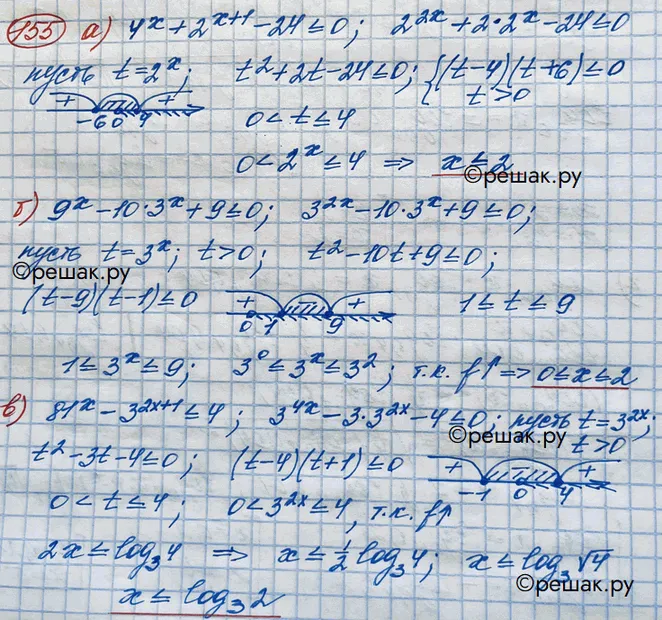 155 а) 4ˣ + 2ˣ⁺¹ - 24 ≤ 0; 2²ˣ + 2·2ˣ - 24 ≤ 0
пусть t = 2ˣ; t² + 2t - 24 ≤ 0; { (t-4)(t+6) ≤ 0
t > 0
+ - + -6 0 4
0 < t ≤ 4
0 < 2ˣ ≤ 4 ⇒ x ≤ 2
©решак.ру
б) 9ˣ - 10·3ˣ + 9 ≤ 0; 3²ˣ - 10·3ˣ + 9 ≤ 0;
пусть t = 3ˣ; t > 0; t² - 10t + 9 ≤ 0;
©решак.ру
(t-9)(t-1) ≤ 0 + - + 0 1 9 1 ≤ t ≤ 9
1 ≤ 3ˣ ≤ 9; 3⁰ ≤ 3ˣ ≤ 3²; т.к. f↑ ⇒ 0 ≤ x ≤ 2
в) 81ˣ - 3²ˣ⁺¹ ≤ 4; 3⁴ˣ - 3·3²ˣ - 4 ≤ 0; пусть t = 3²ˣ;
©решак.ру
t > 0
t² - 3t - 4 ≤ 0; (t-4)(t+1) ≤ 0 + - + -1 0 4
0 < t ≤ 4; 0 < 3²ˣ ≤ 4, т.к. f↑
2x ≤ log₃4 ⇒ x ≤ ½ log₃4; x ≤ log₃√4
x ≤ log₃2
©решак.ру